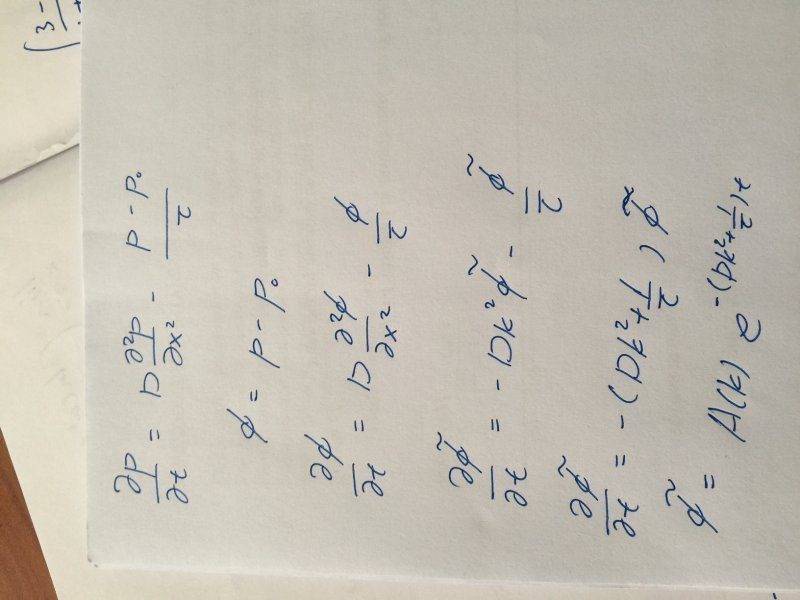 ∂p/∂t = D ∂²p/∂x² - (p - p₀)/τ
ϕ = p - p₀
∂ϕ/∂t = D ∂²ϕ/∂x² - ϕ/τ
∂ϕ̃/∂t = - Dk²ϕ̃ - ϕ̃/τ
∂ϕ̃/∂t = -(Dk² + 1/τ) ϕ̃
ϕ̃ = A(k) e^{-(Dk² + 1/τ)t}